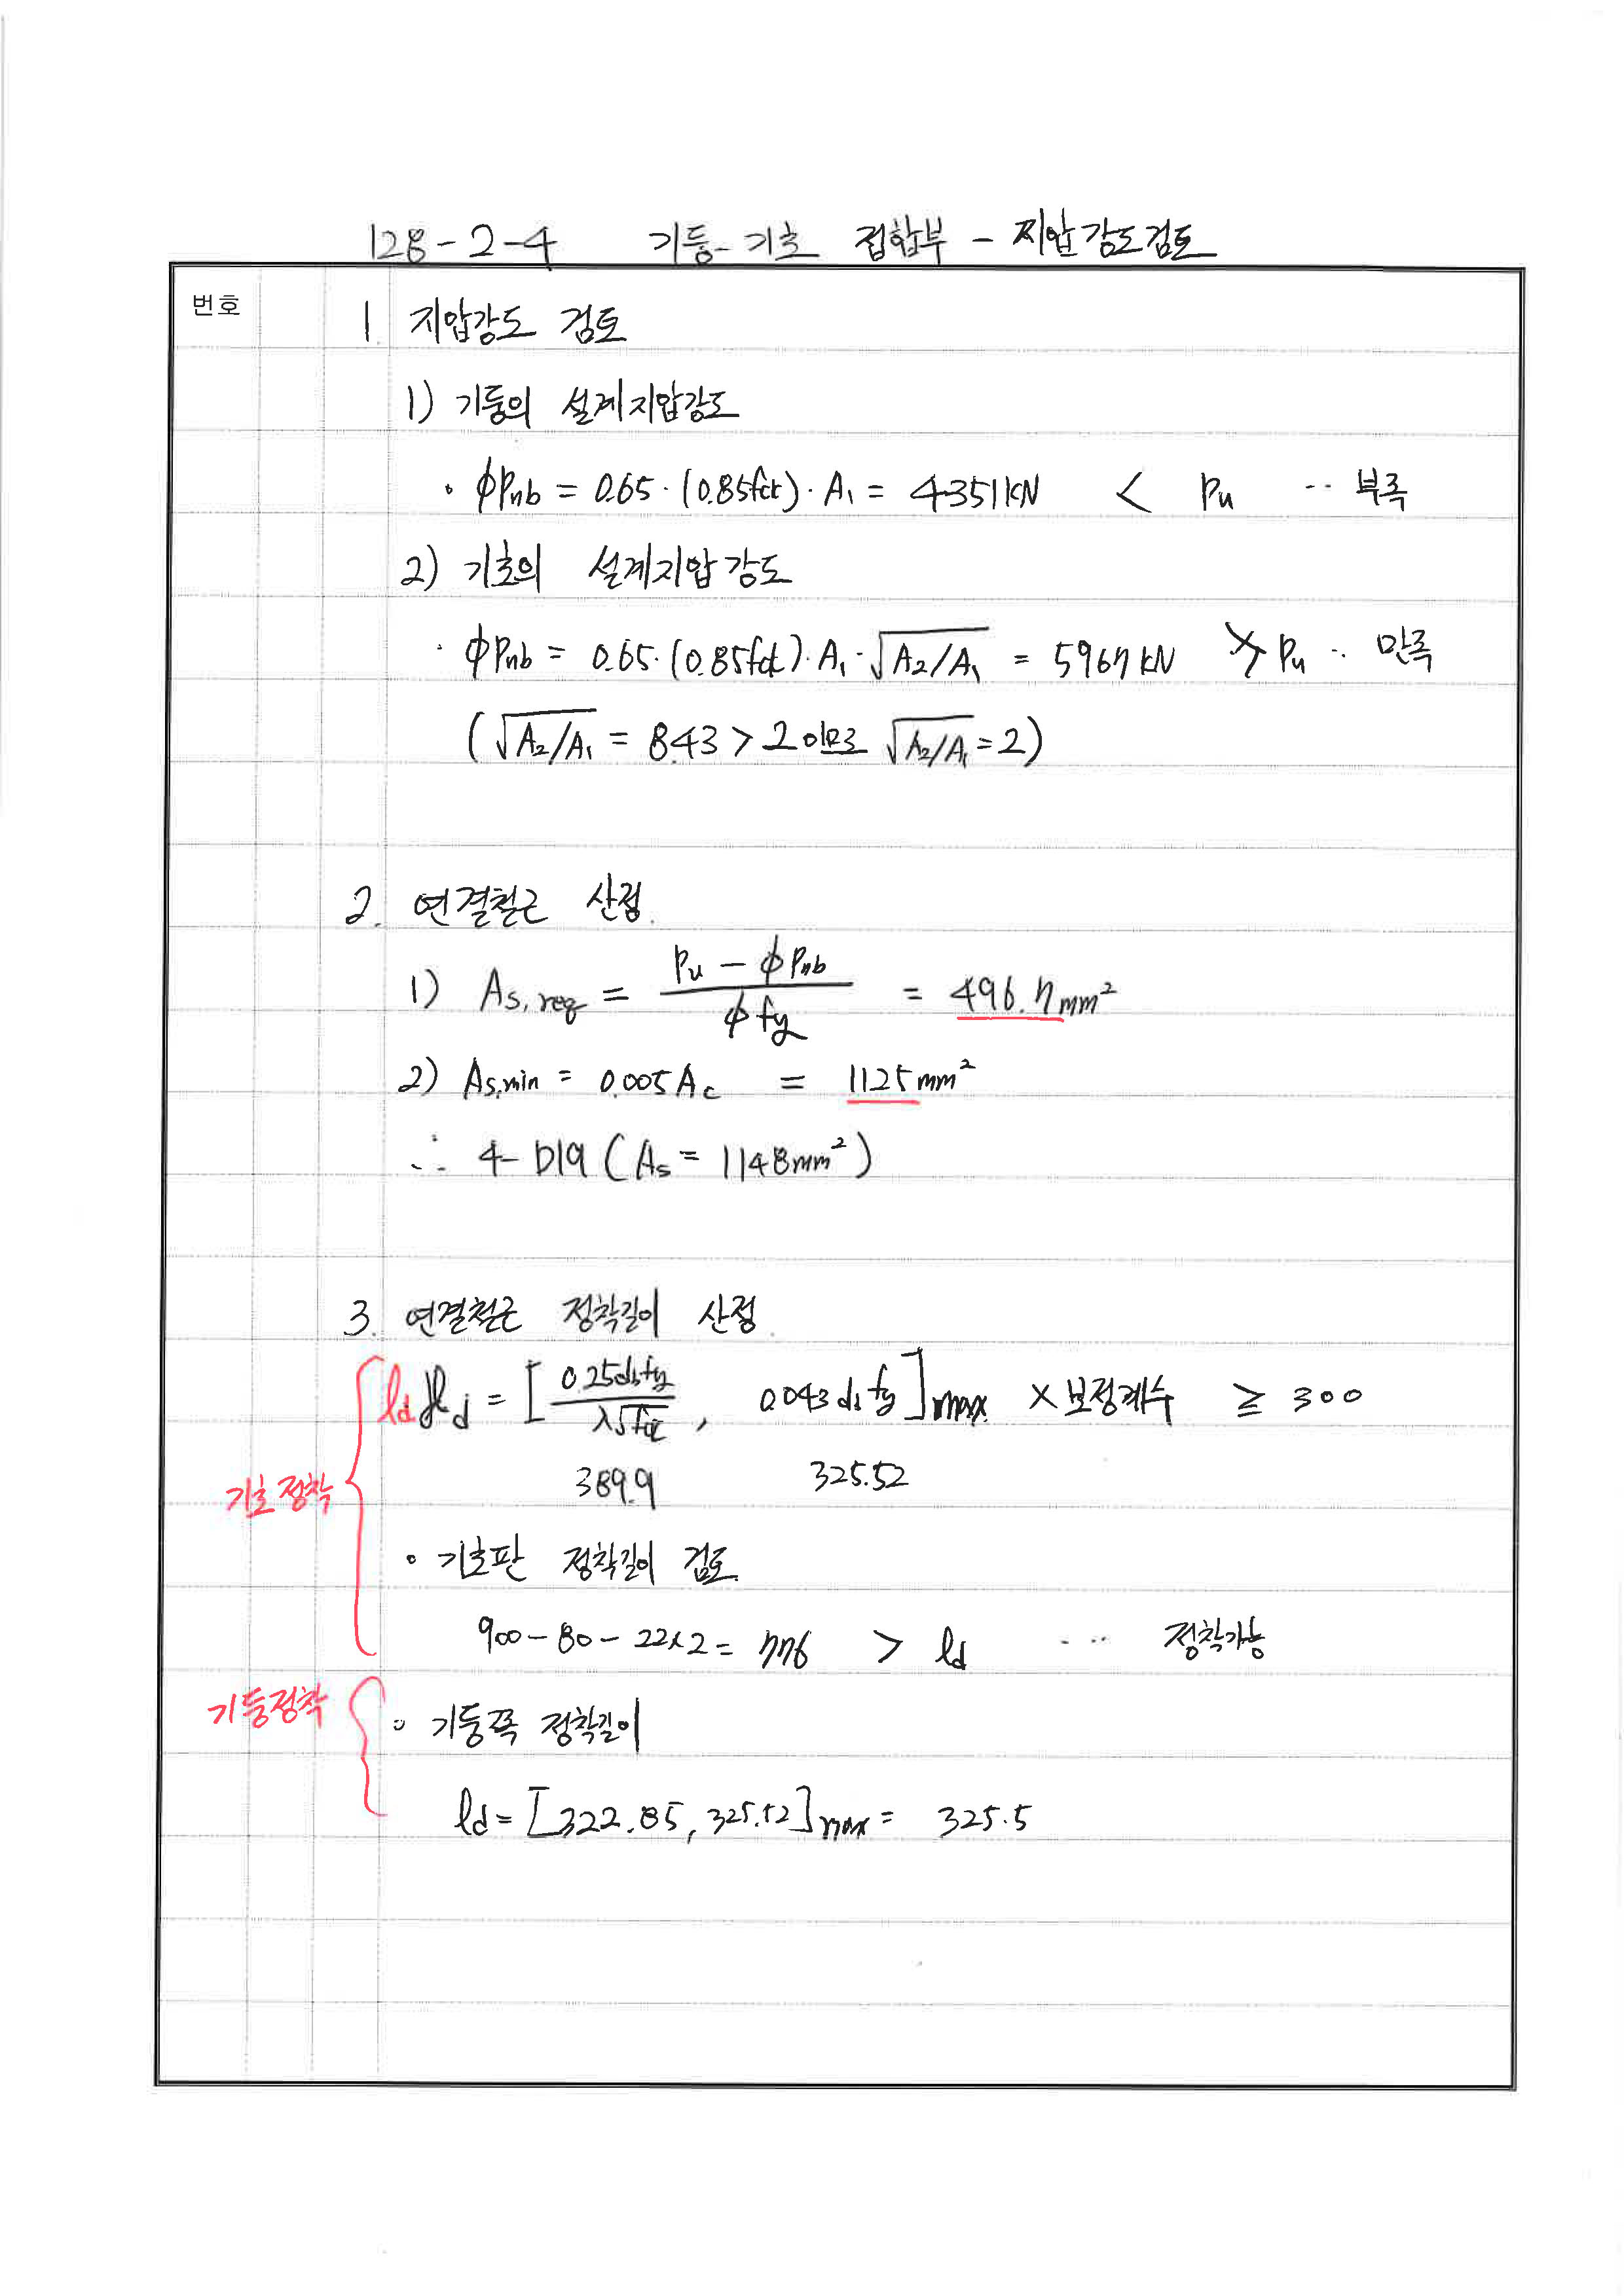 128-2-4 기둥-기초 접합부 - 지압강도검토
번호
1. 지압강도 검토
1) 기둥의 설계지압강도
· ϕPnb = 0.65·(0.85fck)·A₁ = 4351kN < Pu ·· 부족
2) 기초의 설계지압강도
· ϕPnb = 0.65·(0.85fck)·A₁·√A₂/A₁ = 5967kN > Pu ·· 만족
(√A₂/A₁ = 8.43 > 2 이므로 √A₂/A₁ = 2)
2. 연결철근 산정.
1) As,req = (Pu - ϕPnb) / ϕfy = 496.7mm²
2) As,min = 0.005Ac = 1125mm²
∴ 4-D19 (As = 1148mm²)
3. 연결철근 정착길이 산정
ld = [0.25dbfy / λ√fck, 0.043dbfy]max × 보정계수 ≥ 300
389.9 325.52
기초정착
◦ 기초판 정착길이 검토
900-80-22×2 = 776 > ld ··· 정착가능
기둥정착
◦ 기둥쪽 정착길이
ld = [322.85, 325.52]max = 325.5